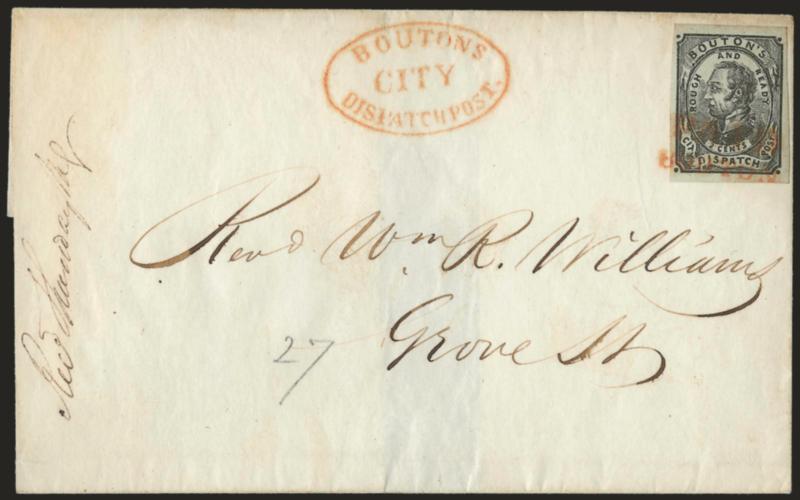 BOUTONS
CITY
DISPATCH POST.
BOUTON'S
ROUGH AND READY
2 CENTS
CITY DISPATCH POST
Revd Wm R. Williams
Grove St
27